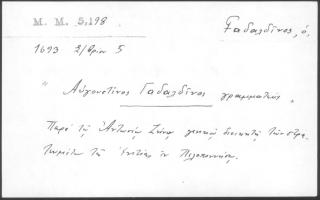 Μ. Μ. 5,198
Γαδαλδῖνος, ὁ,
1693 2/βρίου 5
" Αὐγουστῖνος Γαδαλδῖνος γραμματεὺς "
Παρὰ τῷ Ἀντωνίῳ Ζένῳ γενικῷ διοικητῇ τῶν στρα-
τευμάτων τῆς Ἑνετίας ἐν Πελοποννήσῳ.